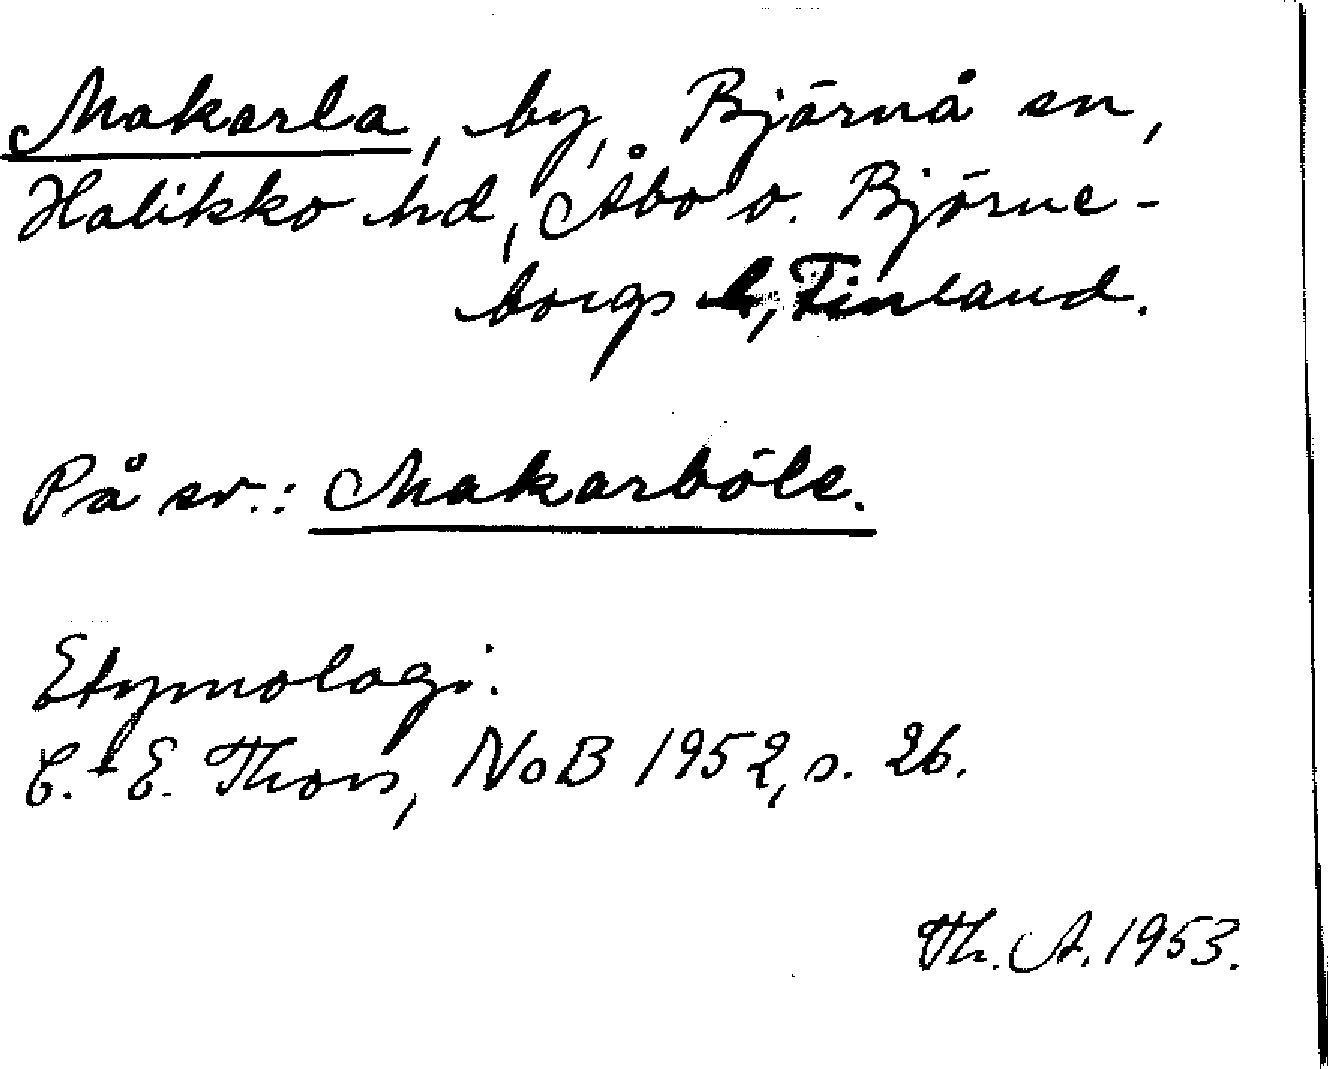 Makarla, by, Bjärnå sn,
Halikko hd, Åbo o. Björne-
borgs l, Finland.
På sv.: Makarböle.
Etymologi:
C.-E. Thors, NoB 1952, s. 26.
Th. A. 1953.